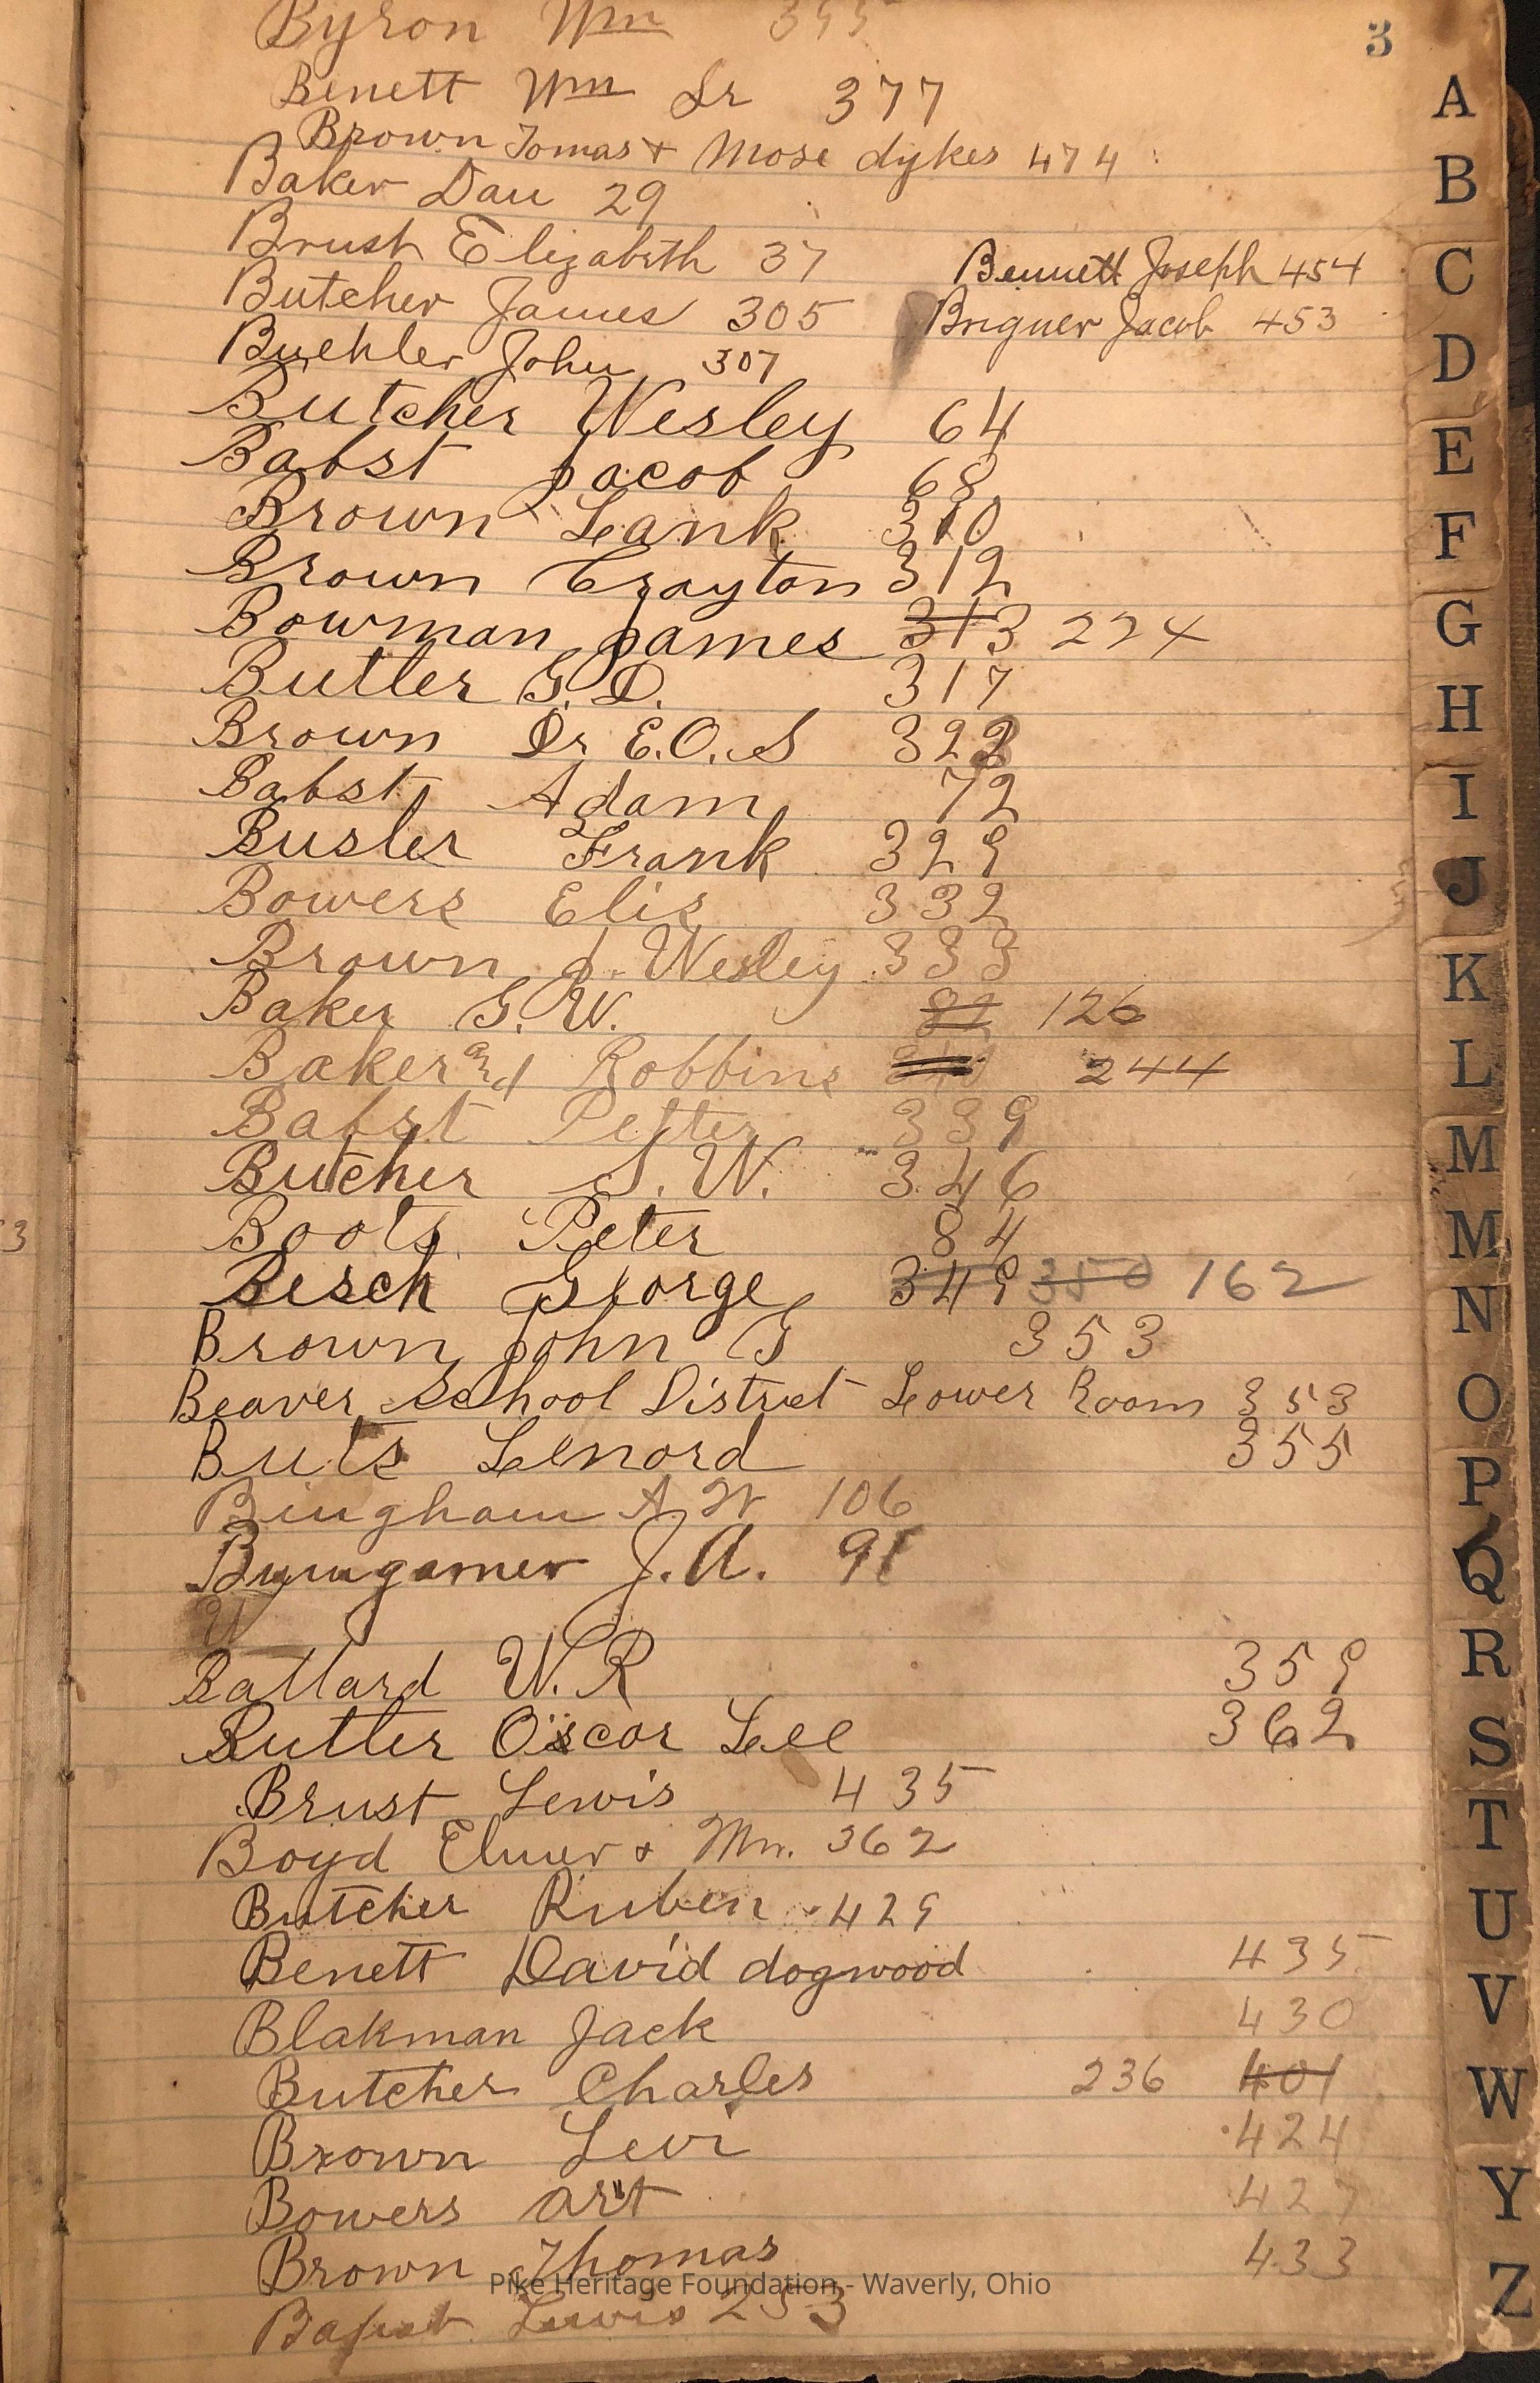 Byron Wm 395
3
Benett Wm Sr 377
Brown Tomas + Mose dykes 474
Baker Dan 29
Brush Elizabeth 37
Bennett Joseph 454
Butcher James 305
Brigner Jacob 453
Buehler John 307
Butcher Wesley 64
Babst Jacob 68
Brown Lank 310
Brown Crayton 312
Bowman James 313 224
Butler G. D. 317
Brown Dr E.O.S 322
Babst Adam 72
Busler Frank 329
Bowers Elis 332
Brown J. Wesley 333
Baker G. W. 126
Baker and Robbins 244
Babst Petter 339
Butcher S. W. 346
Boots Peter 84
Besch George 349 350 162
Brown John G 353
Beaver School District Lower Room 353
Buts Lenord 355
Bingham A W 106
Bumgarner J. A. 91
Ballard W. R 359
Butler Oscar Lee 362
Brust Lewis 435
Boyd Elmer + Mn. 362
Butcher Ruben 429
Benett David dogwood 435
Blakman Jack 430
Butcher Charles 236 401
Brown Levi 424
Bowers Art 427
Brown Thomas 433
Pike Heritage Foundation - Waverly, Ohio
Lewis 253
A
B
C
D
E
F
G
H
I
J
K
L
M
M
N
O
P
Q
R
S
T
U
V
W
Y
Z